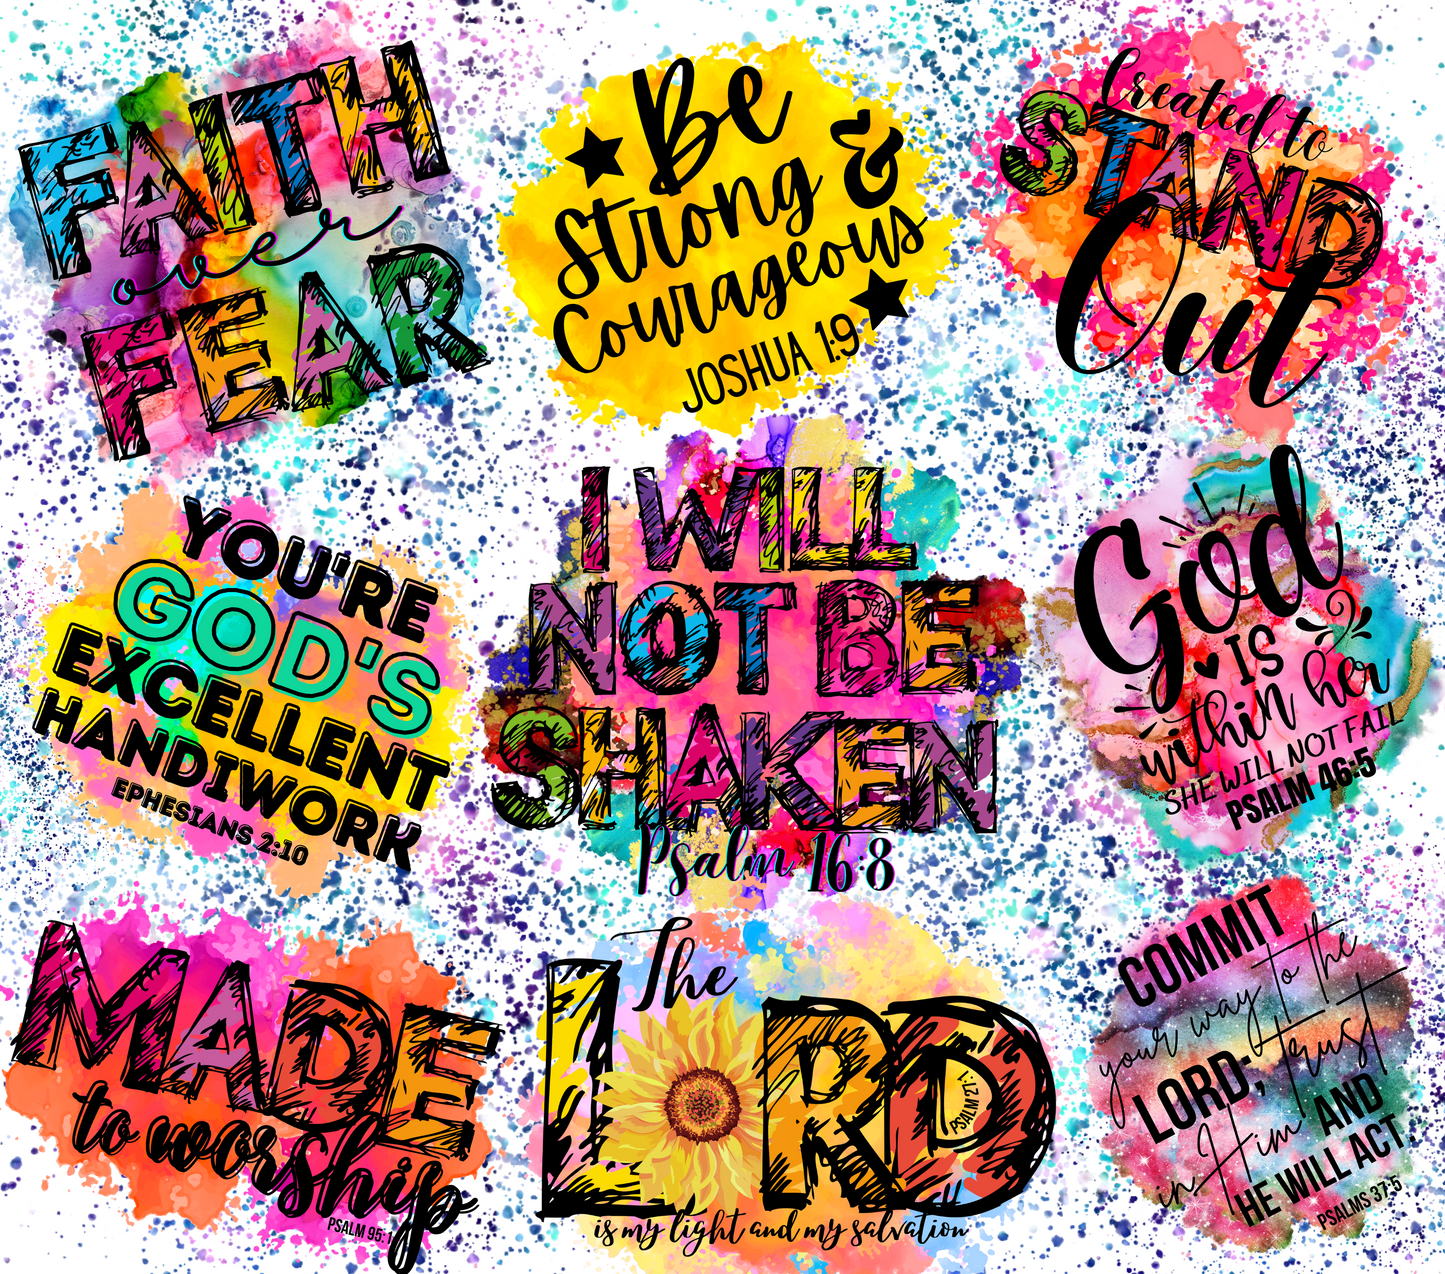 FAITH
over
FEAR
Be
Strong &
Courageous
JOSHUA 1:9
Created to
STAND
Out
YOU'RE
GOD'S
EXCELLENT
HANDIWORK
EPHESIANS 2:10
I WILL
NOT BE
SHAKEN
Psalm 16:8
God
IS
within her
SHE WILL NOT FAIL
PSALM 46:5
MADE
to worship
PSALM 95:1
The
LORD
PSALM 27:1
is my light and my salvation
COMMIT
your way to the
LORD; trust
in Him AND
HE WILL ACT
PSALMS 37:5